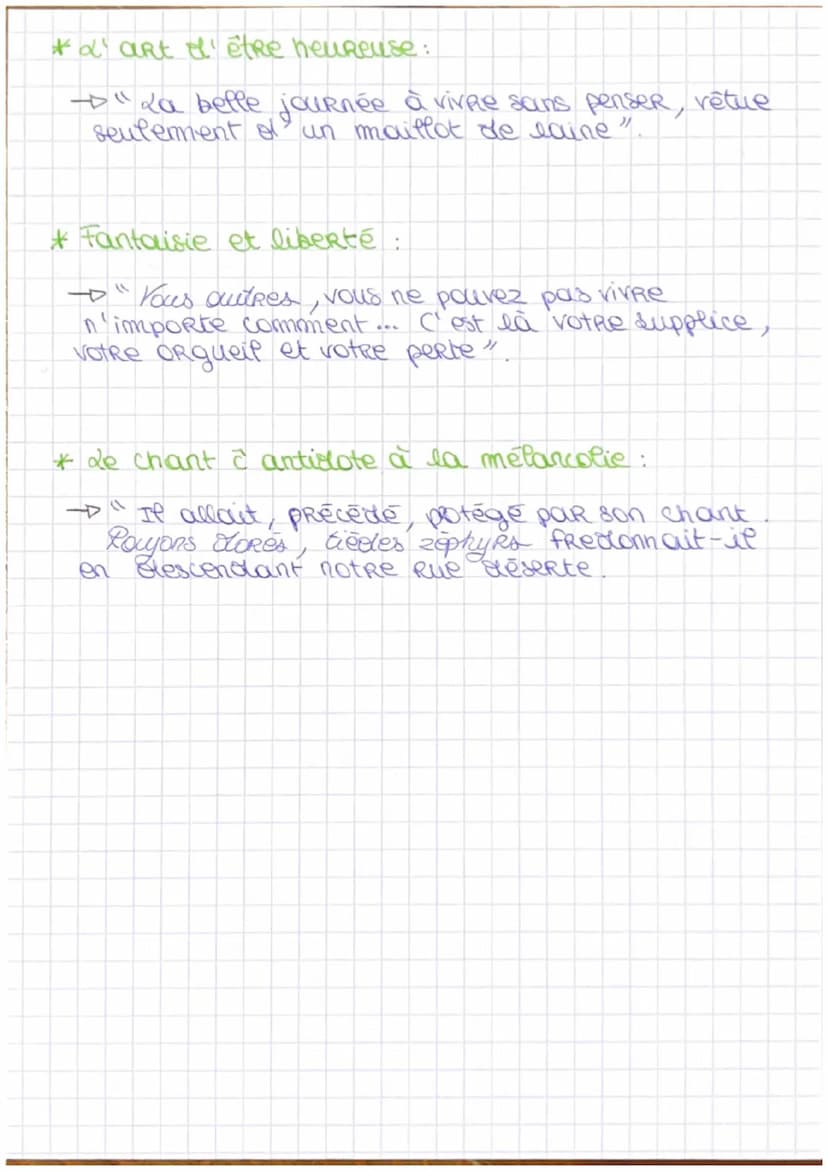 * L'art d'être heureuse :
→ " La belle journée à vivre sans penser, vêtue
seulement d'un maillot de laine ".
* Fantaisie et liberté :
→ " Vous autres, vous ne pouvez pas vivre
n'importe comment ... C'est là votre supplice,
votre orgueil et votre perte ".
* Le chant c̄ antidote à la mélancolie :
→ " Il allait, précédé, potégé par son chant.
Rayons dorés, tièdes zéphyrs fredonnait-il
en descendant notre rue déserte.